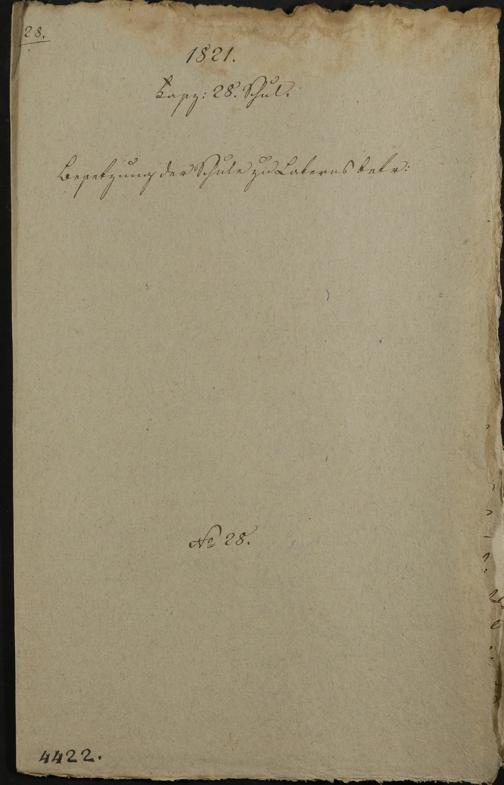 28.
1821.
Kapp: 28. Schul.
Besetzung der Schule zu Laterns betr:
No 28.
4422.